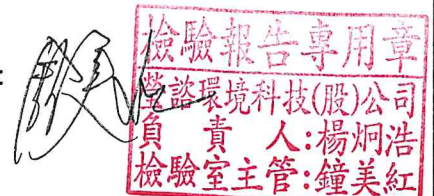 檢驗報告專用章
瑩諮環境科技(股)公司
負責人:楊炯浩
檢驗室主管:鐘美紅
: